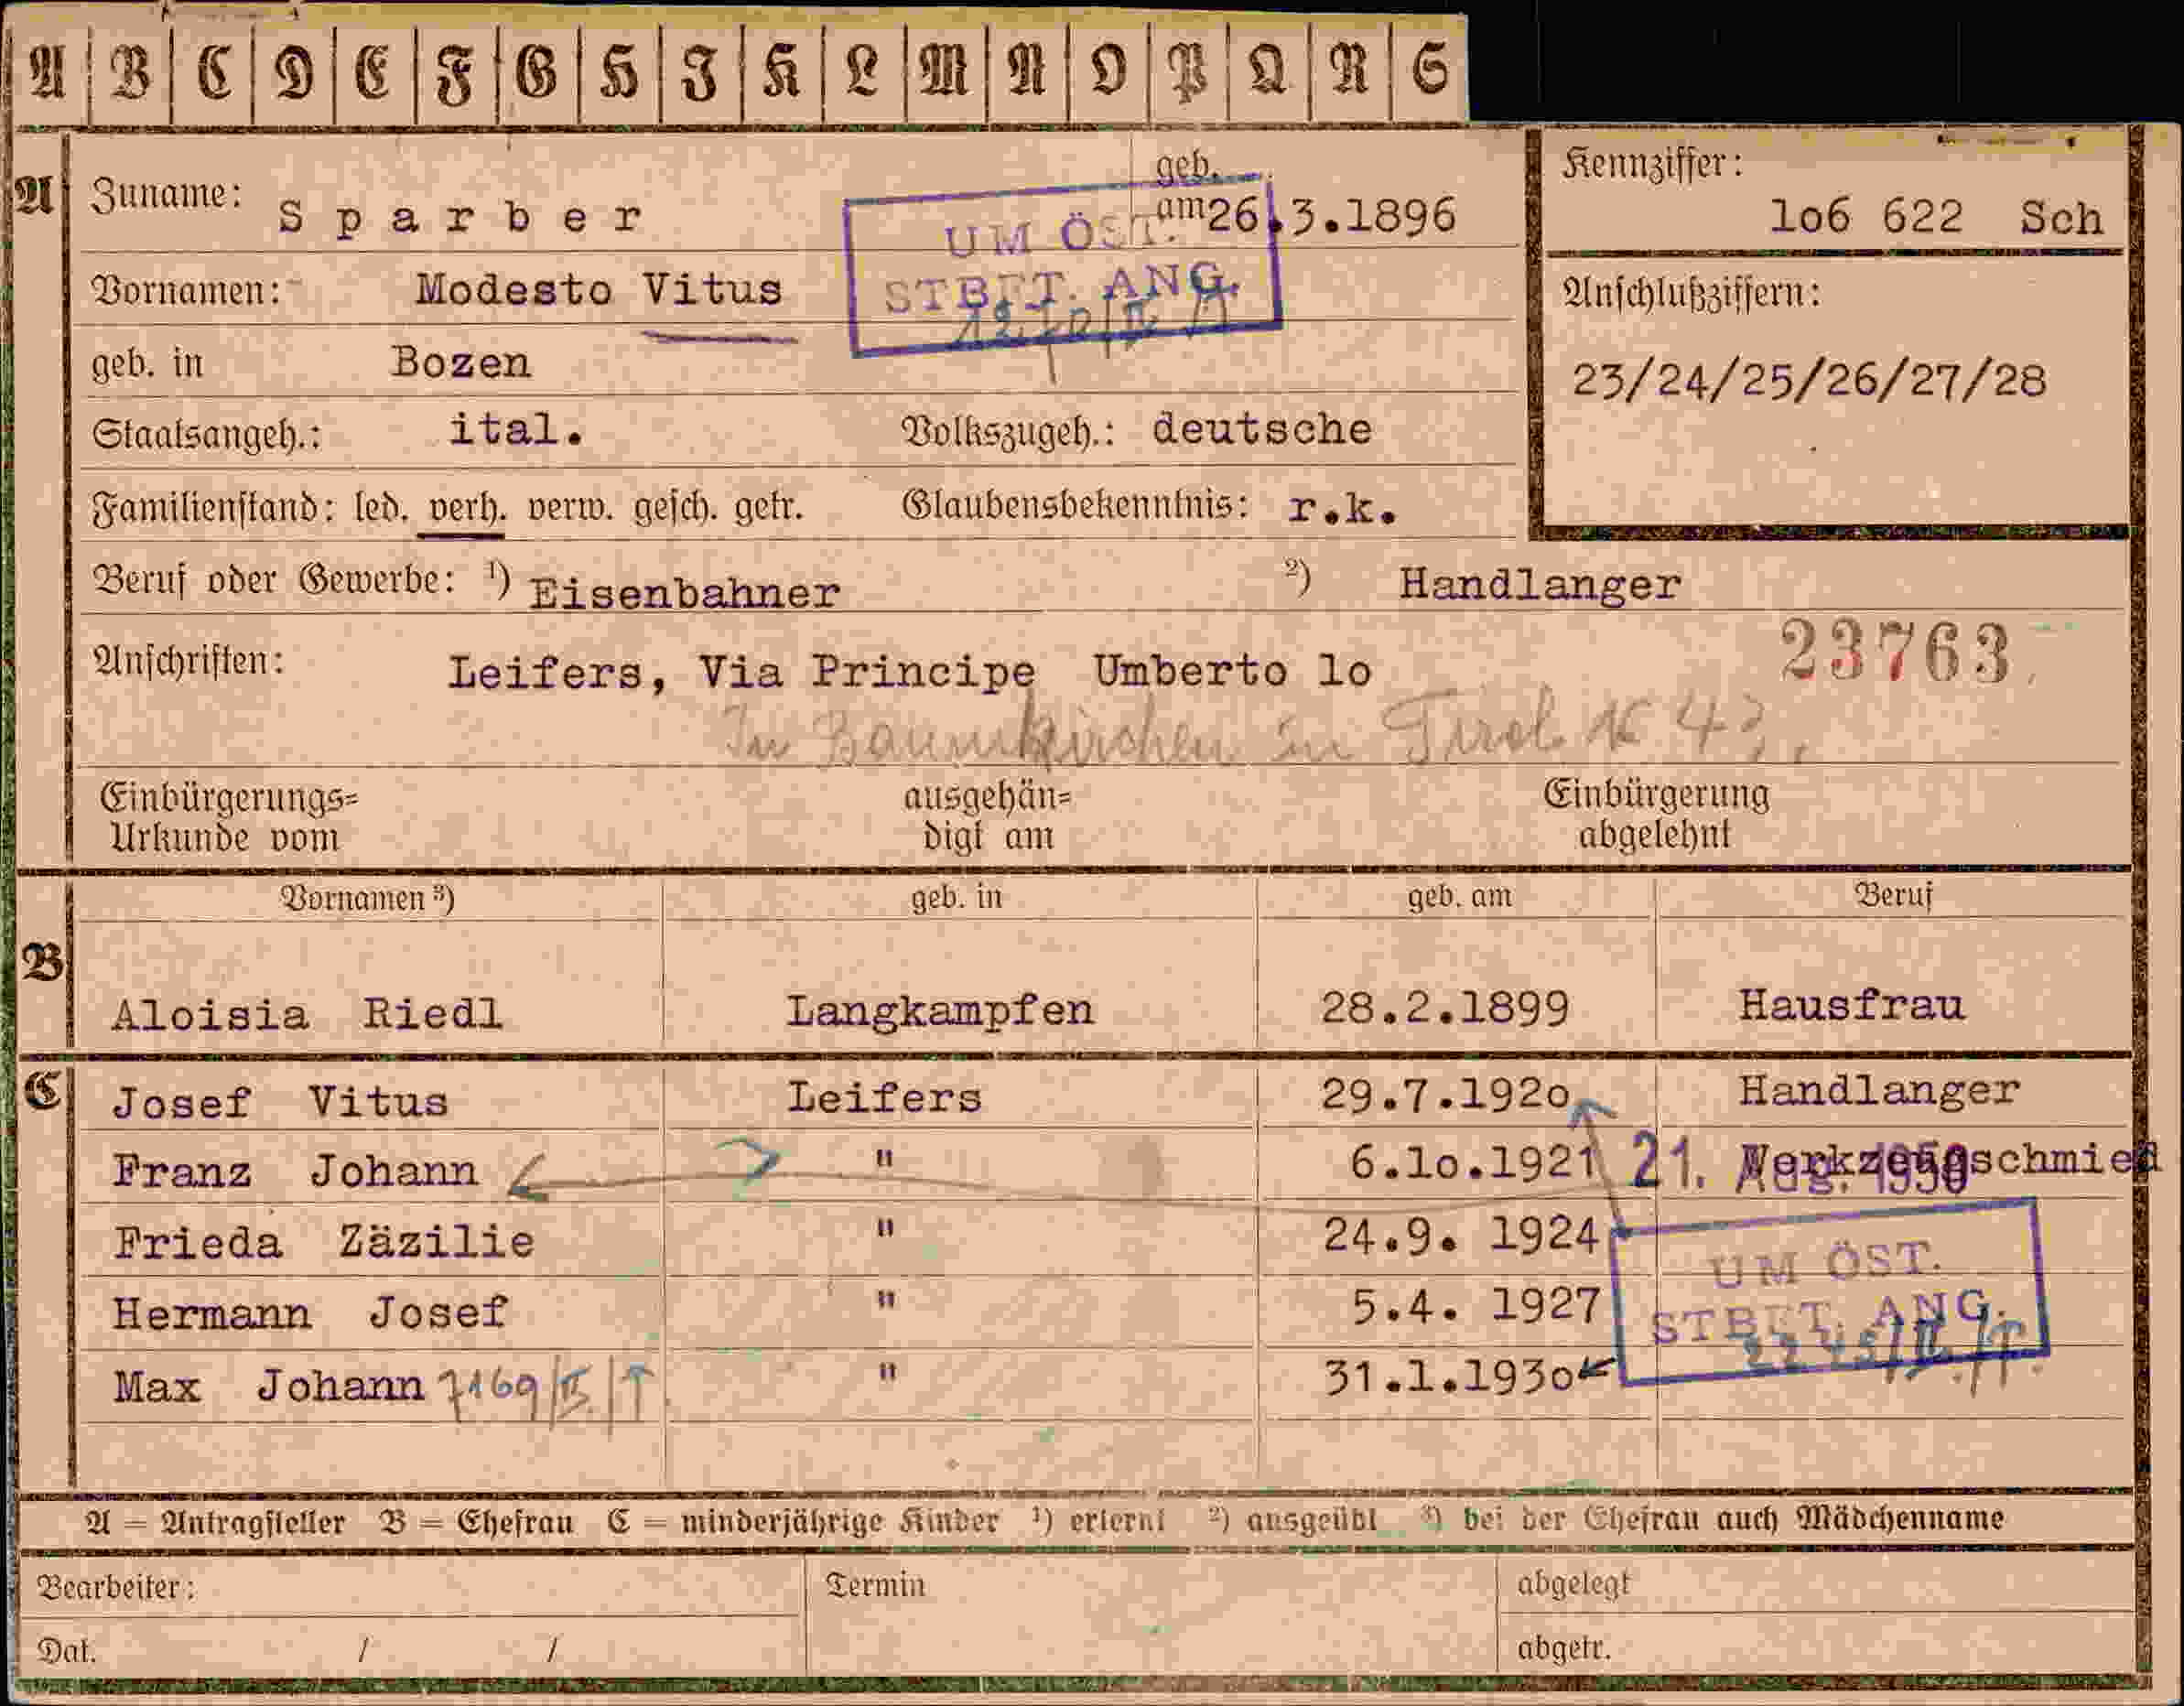 A B C D E F G H I K L M N O P Q R S
A Zuname: Sparber geb. am 26.3.1896
Kennziffer:
1o6 622 Sch
UM ÖST.
STBFT. ANG.
Vornamen: Modesto Vitus
Anschlußziffern:
geb. in Bozen
23/24/25/26/27/28
Staatsangeh.: ital. Volkszugeh.: deutsche
Familienstand: led. verh. verw. gesch. getr. Glaubensbekenntnis: r.k.
Beruf oder Gewerbe: 1) Eisenbahner 2) Handlanger
23763
Anschriften: Leifers, Via Principe Umberto lo
In Baumkirchen in Tirol
Einbürgerungs= ausgehän= Einbürgerung
Urkunde vom digt am abgelehnt
Vornamen 3) geb. in geb. am Beruf
B
Aloisia Riedl Langkampfen 28.2.1899 Hausfrau
C Josef Vitus Leifers 29.7.192o Handlanger
Franz Johann " 6.1o.1921 Werkzeugschmied
21. Aug. 1950
Frieda Zäzilie " 24.9. 1924
UM ÖST.
Hermann Josef " 5.4. 1927
STBFT. ANG.
Max Johann 7169/II/ " 31.1.193o
A = Antragsteller B = Ehefrau C = minderjährige Kinder 1) erlernt 2) ausgeübt 3) bei der Ehefrau auch Mädchenname
Bearbeiter: Termin abgelegt
Dat. / / abgetr.